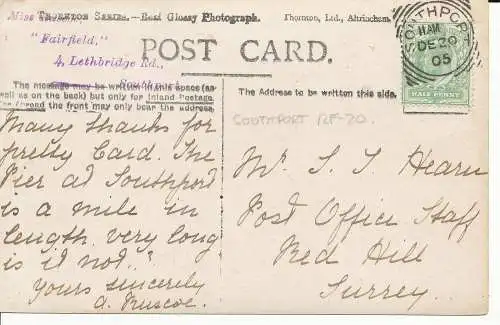 Thornton Series.—Real Glossy Photograph. Thornton, Ltd., Altrincham.
Miss
"Fairfield,"
4, Lethbridge Rd.,
Southport
POST CARD.
SOUTHPORT
11 AM
DE 20
05
HALF PENNY
The message may be written in this space (as
well as on the back) but only for inland postage
the front may only bear the address.
The Address to be written this side.
SOUTHPORT RF-20.
Many thanks for
pretty Card. The
Pier at Southport
is a mile in
length very long
is it not.."
yours sincerely
a. Ruscoe.
Mr S. J. Hearn
Post Office Staff
Red Hill
Surrey.